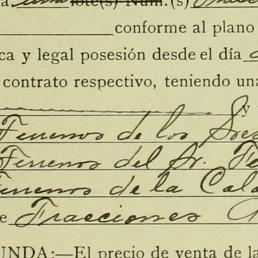 a una lote(s) Núm. (s)
conforme al plano
ca y legal posesión desde el día
contrato respectivo, teniendo una
y
Terrenos de los Sres
Terrenos del Sr. Fe
Terrenos de la Cala
e Fracciones
UNDA:—El precio de venta de la